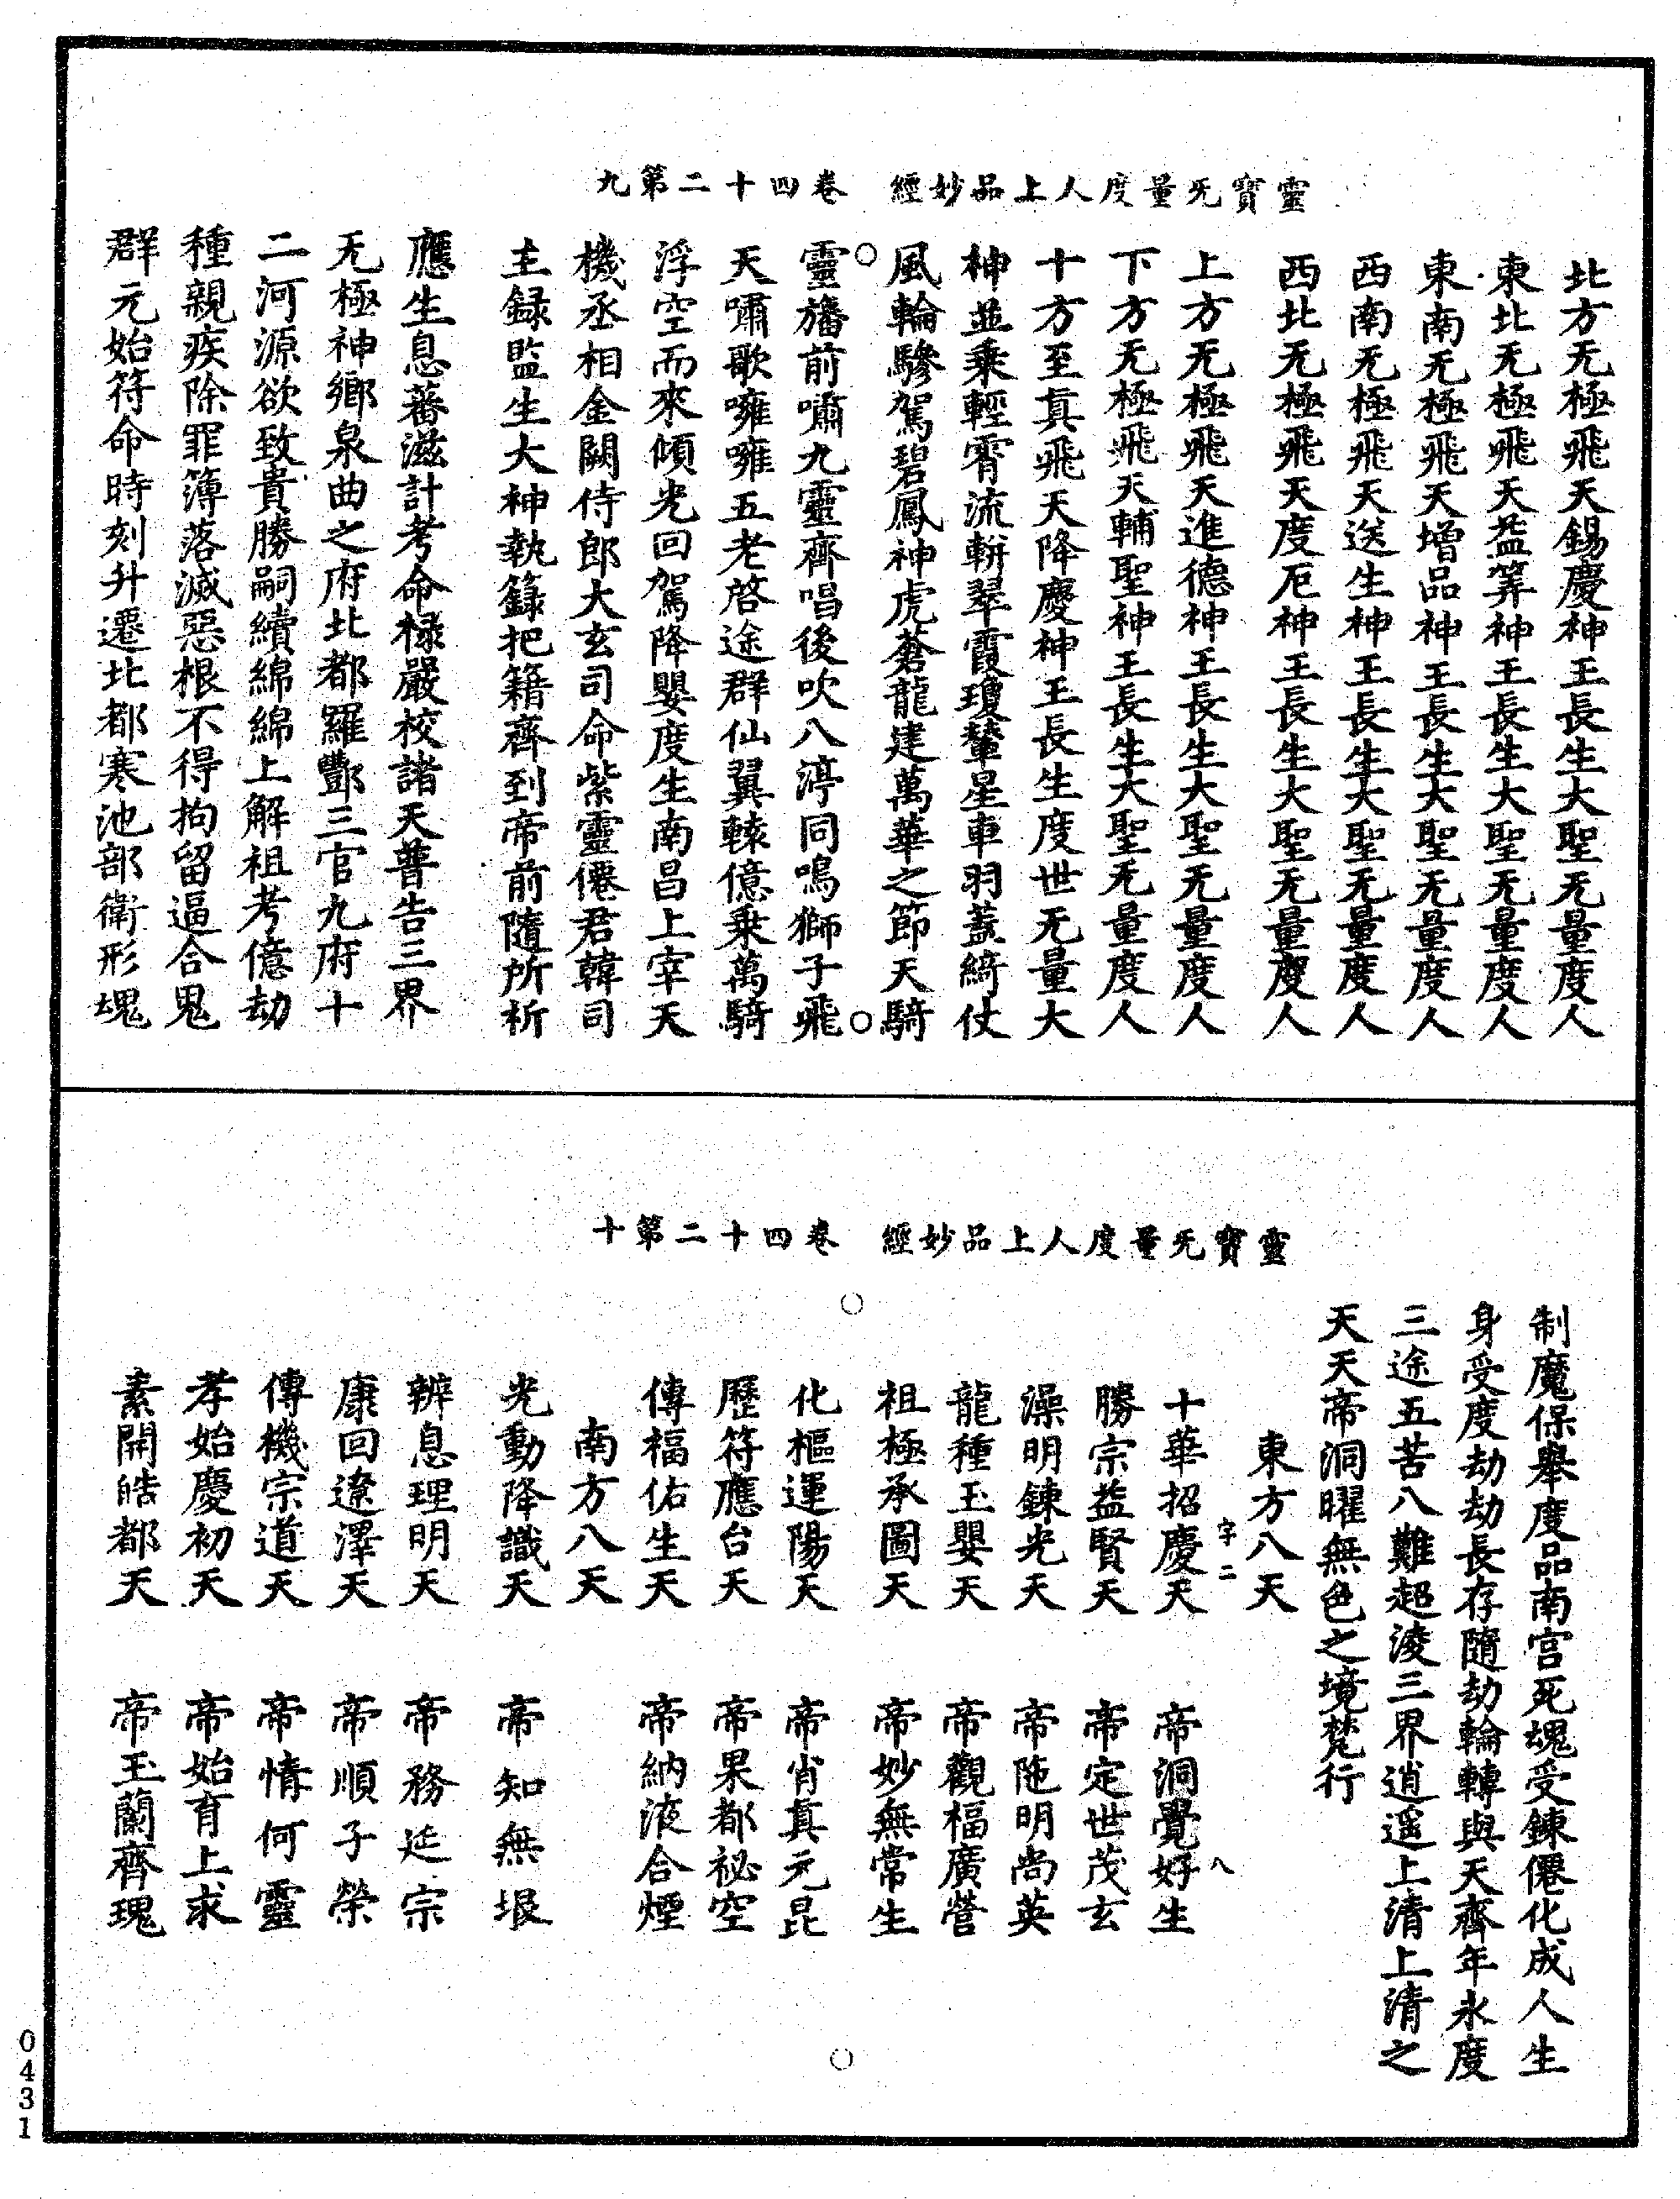 靈寶旡量度人上品妙經　卷四十二第九
北方无極飛天錫慶神王長生大聖无量度人
東北无極飛天益筭神王長生大聖无量度人
東南无極飛天增品神王長生大聖无量度人
西南无極飛天送生神王長生大聖无量度人
西北无極飛天度厄神王長生大聖无量度人
上方无極飛天進德神王長生大聖无量度人
下方无極飛天輔聖神王長生大聖无量度人
十方至真飛天降慶神王長生度世无量大
神並乘輕霄流軿翠霞瓊輦星車羽蓋綺仗
風輪驂駕碧鳳神虎蒼龍建萬華之節天騎
靈旛前嘯九靈齊唱後吹八渟同鳴獅子飛
天嘯歌嗈嗈五老啓途群仙翼轅億乘萬騎
浮空而來傾光回駕降嬰度生南昌上宰天
機丞相金闕侍郎大玄司命紫靈僊君韓司
主録監生大神執籙把籍齊到帝前隨所祈
應生息蕃滋計考命祿嚴校諸天普告三界
无極神鄉泉曲之府北都羅酆三官九府十
二河源欲致貴勝嗣續綿綿上解祖考億劫
種親疾除罪簿落滅惡根不得拘留逼合鬼
群元始符命時刻升遷北都寒池部衛形魂
靈寶旡量度人上品妙經　卷四十二第十
制魔保舉度品南宮死魂受鍊僊化成人生
身受度劫劫長存隨劫輪轉與天齊年永度
三途五苦八難超淩三界逍遥上清上清之
天天帝洞曜無色之境梵行
東方八天
字二　八
十華招慶天　帝洞覺好生
勝宗益賢天　帝定世茂玄
澡明鍊光天　帝陁明尚英
龍種玉嬰天　帝觀福廣營
祖極承圖天　帝妙無常生
化樞運陽天　帝肖真元昆
歷符應台天　帝果都祕空
傳福佑生天　帝納液合煙
南方八天
光動降識天　帝知無垠
辨息理明天　帝務延宗
康回遼澤天　帝順子榮
傳機宗道天　帝情何靈
孝始慶初天　帝始育上求
素開皓都天　帝玉蘭齊瑰
0431